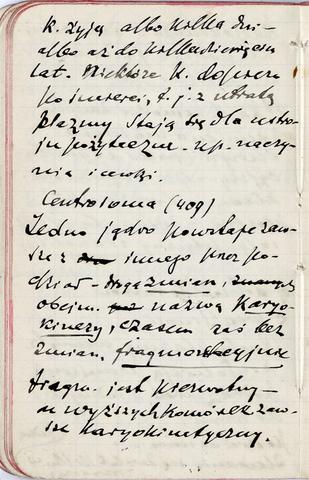 k. żyją albo kilka dni -
albo aż do kilkadziesięciu
lat. Niektóre k. dopiero
po śmierci, t. j. z utratą
plazmy stają się dla ustro-
ju pożyteczne - np. naczy-
nia i cewki.
Centrosoma (409)
Jedno jądro powstaje zaw-
sze z innego przez po-
dział - drogą zmian, znanych
objęm. nazwą Karyo-
kinezy, czasem zaś bez
zmian, fragmentacyjnie
fragm. jest pierwotny -
w wyższych komórek zaw-
sze Karyokinetyczny.